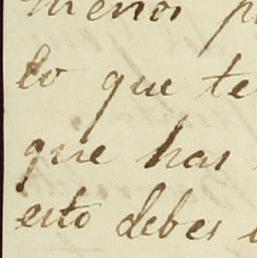 menos p
lo que te
que has
esto debes